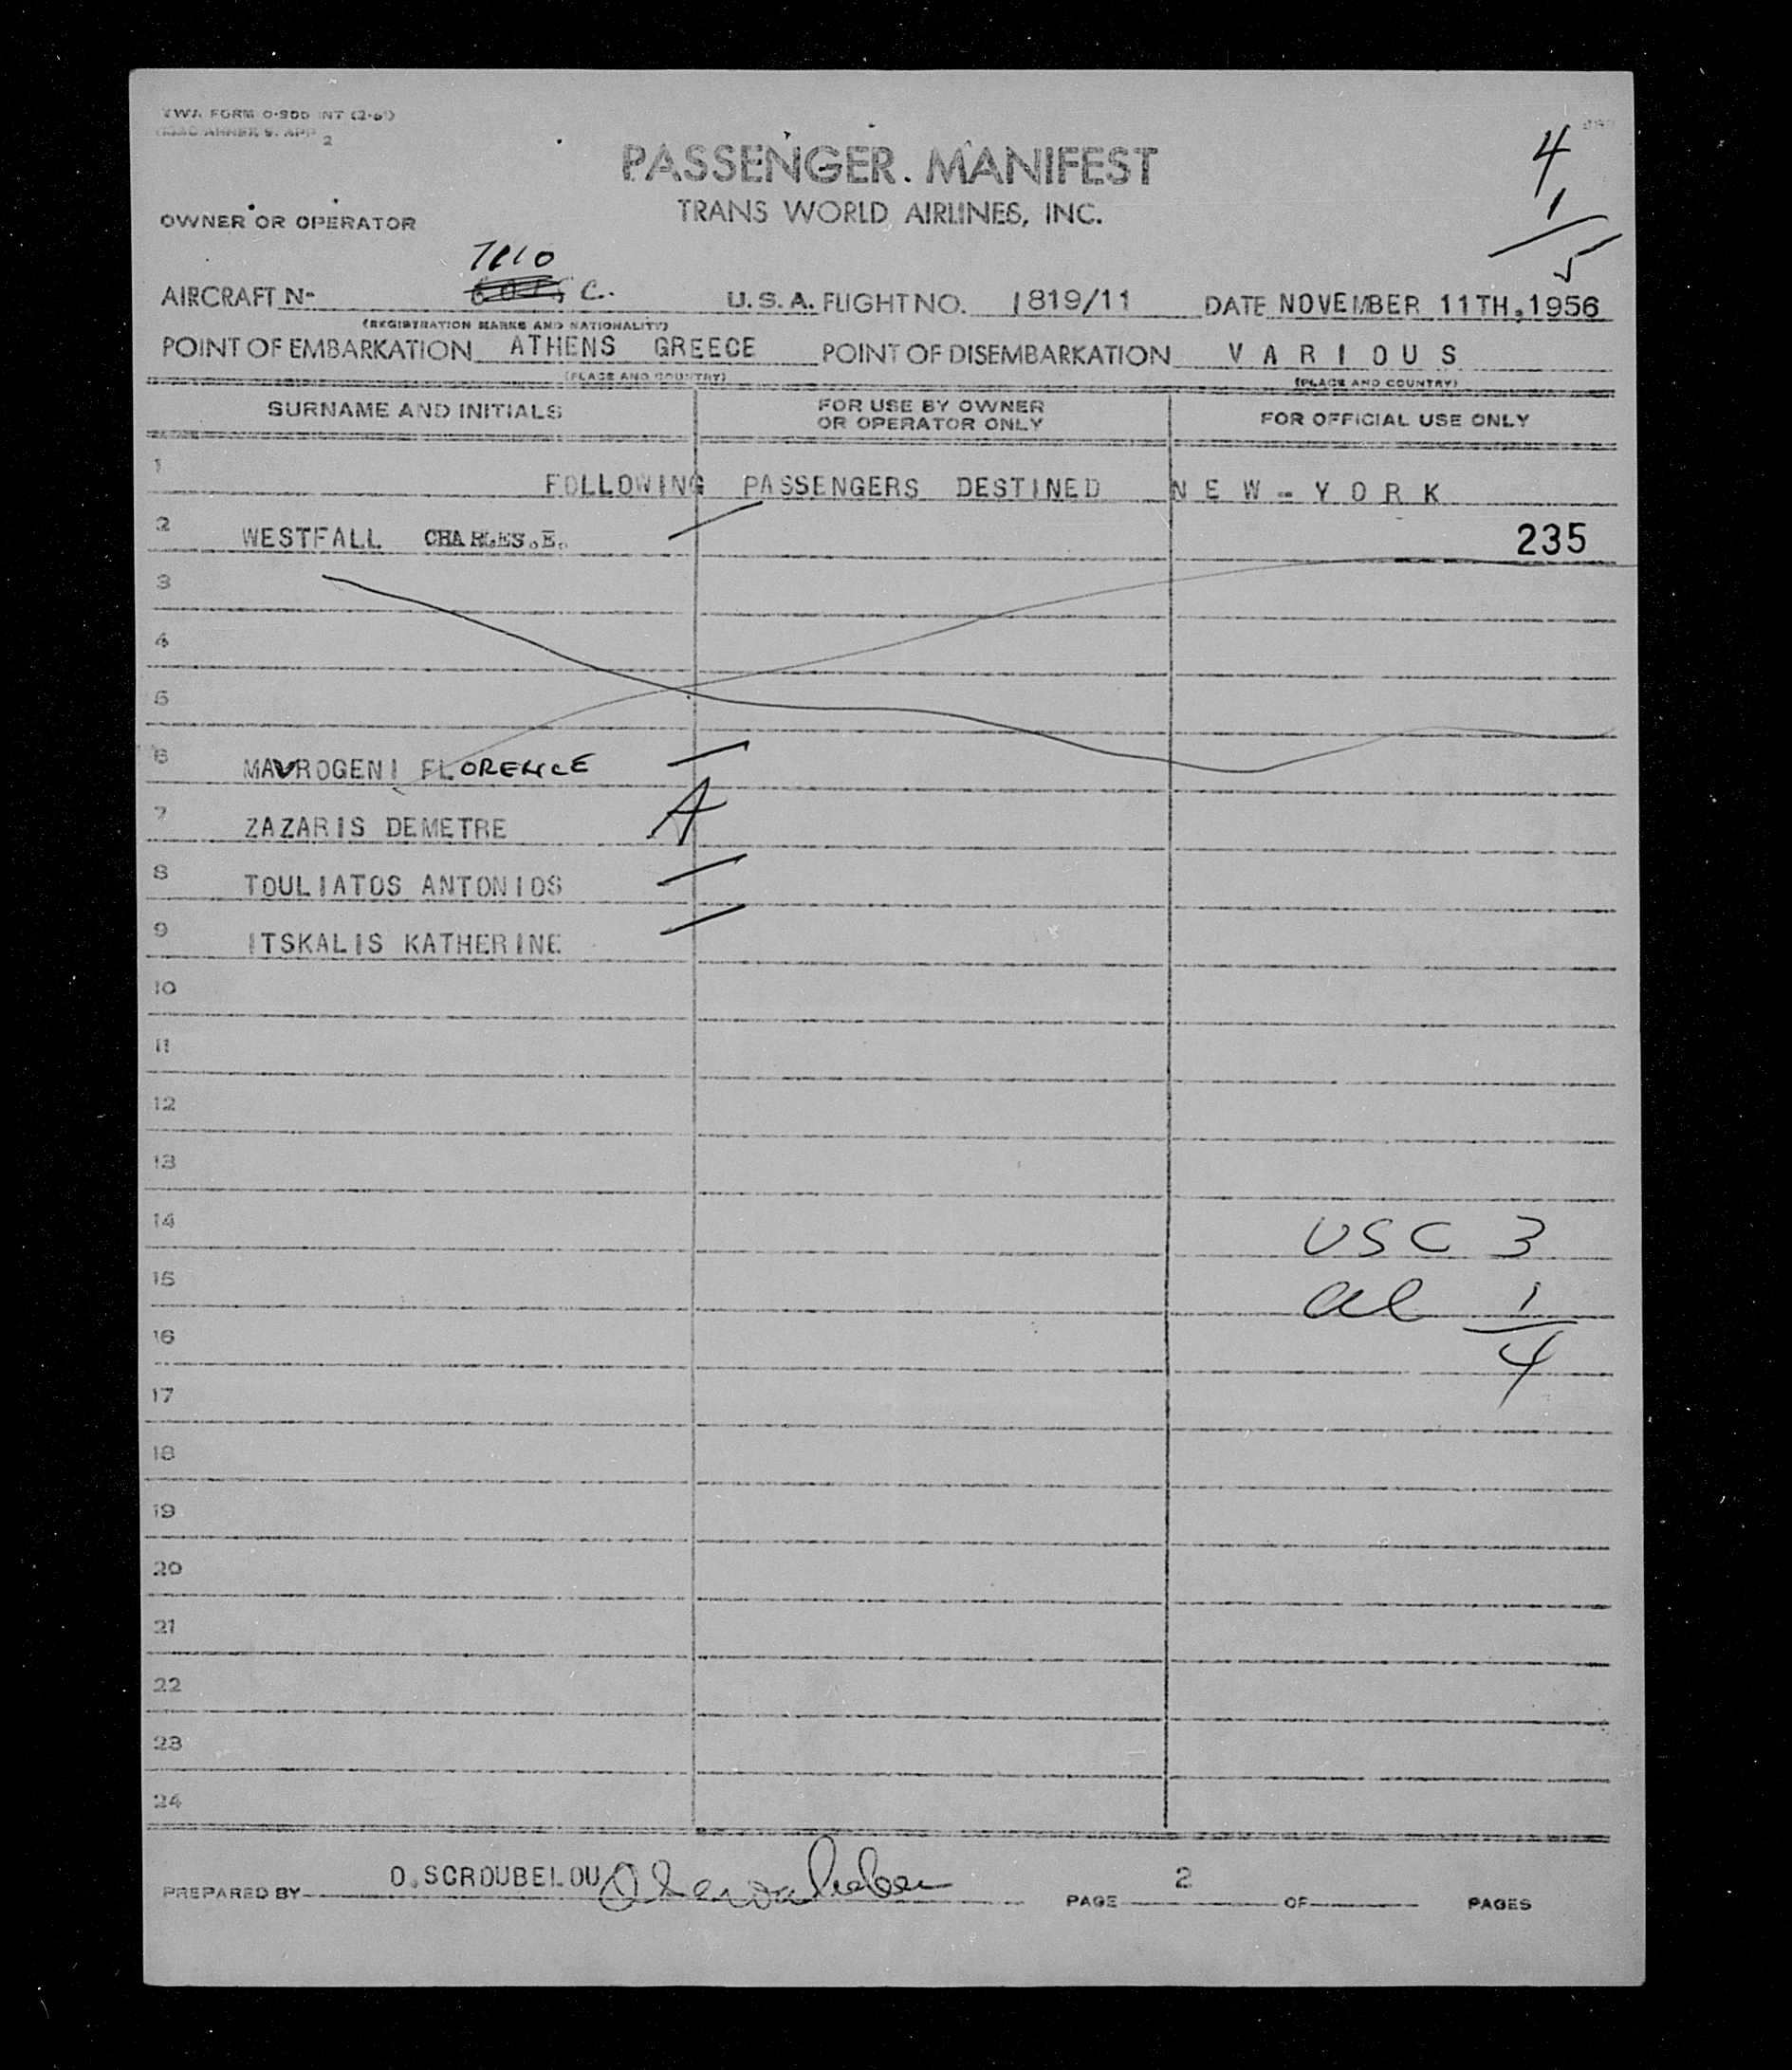 TWA FORM O-900 INT (2-61)
ICAO ANNEX 9. APP 2
4
PASSENGER. MANIFEST
TRANS WORLD AIRLINES, INC.
1
OWNER OR OPERATOR
5
C.
AIRCRAFT N- U.S.A. FLIGHT NO. 1819/11 DATE NOVEMBER 11TH,1956
(REGISTRATION MARKS AND NATIONALITY)
POINT OF EMBARKATION ATHENS GREECE POINT OF DISEMBARKATION VARIOUS
(PLACE AND COUNTRY) (PLACE AND COUNTRY)
SURNAME AND INITIALS FOR USE BY OWNER OR OPERATOR ONLY FOR OFFICIAL USE ONLY
1 FOLLOWING PASSENGERS DESTINED NEW-YORK
2 WESTFALL CHARLES.E. 235
3
4
5
6 MAVROGENI FLORENCE
7 ZAZARIS DEMETRE A
8 TOULIATOS ANTONIOS
9 ITSKALIS KATHERINE
10
11
12
13
14 USC 3
15 al 1
16 4
17
18
19
20
21
22
23
24
PREPARED BY O.SCROUBELOU PAGE 2 OF PAGES